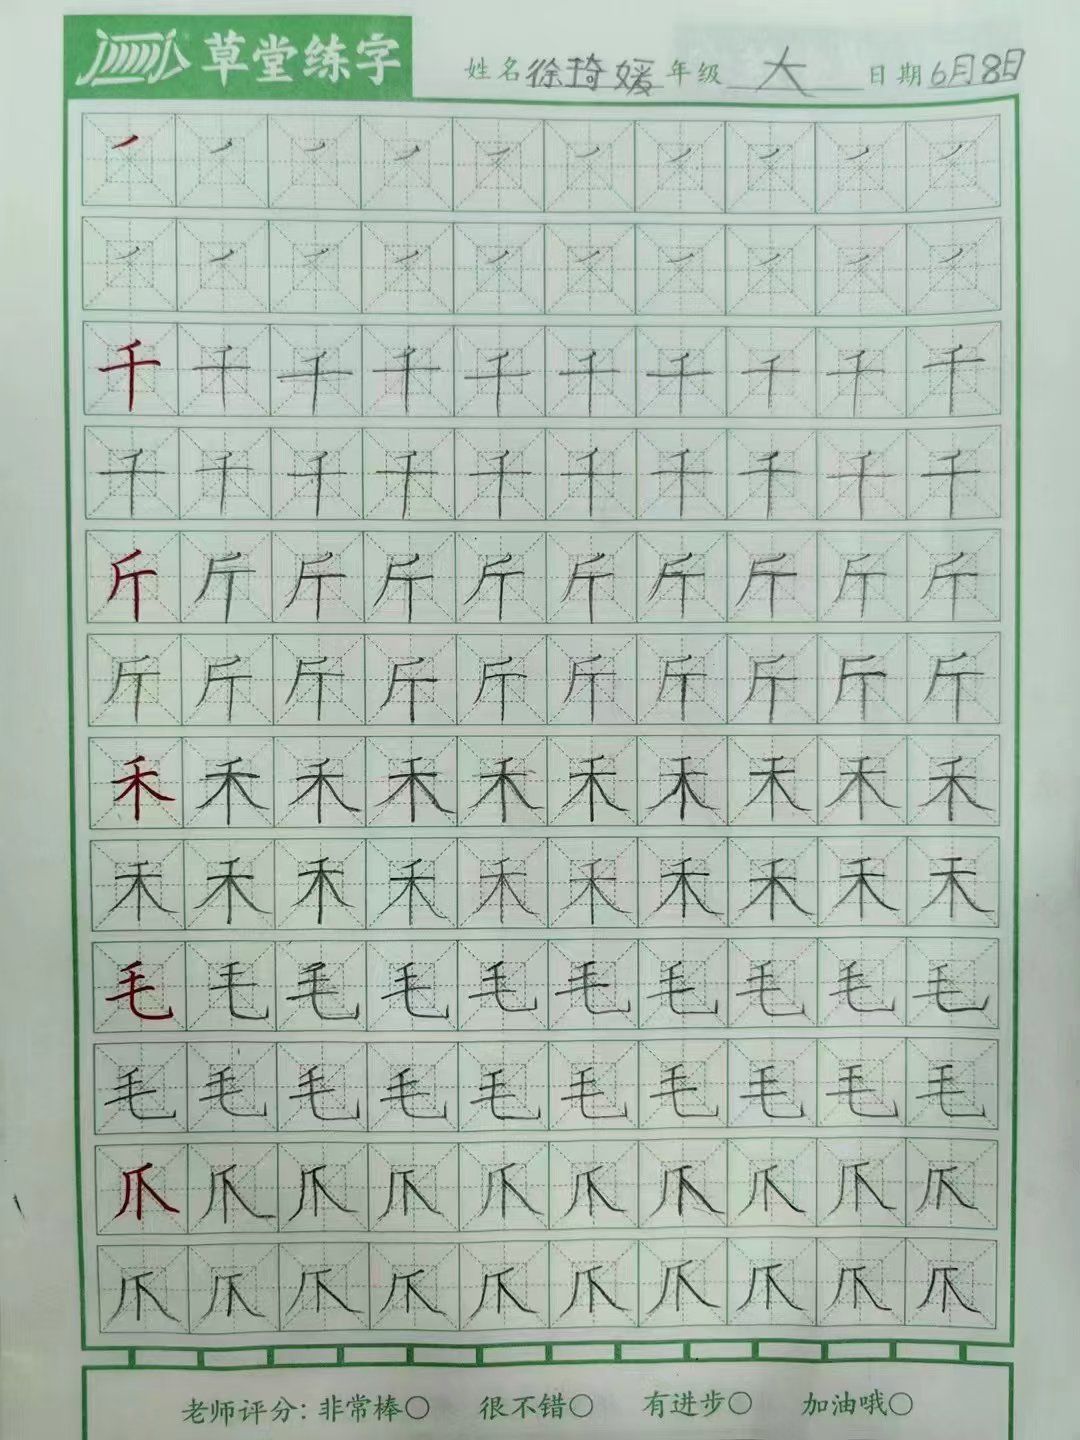 草堂练字 姓名 徐琦媛 年级 大 日期 6月8日
㇒ ㇒ ㇒ ㇒ ㇒ ㇒ ㇒ ㇒ ㇒ ㇒
㇒ ㇒ ㇒ ㇒ ㇒ ㇒ ㇒ ㇒ ㇒ ㇒
千 千 千 千 千 千 千 千 千 千
千 千 千 千 千 千 千 千 千 千
斤 斤 斤 斤 斤 斤 斤 斤 斤 斤
斤 斤 斤 斤 斤 斤 斤 斤 斤 斤
禾 禾 禾 禾 禾 禾 禾 禾 禾 禾
禾 禾 禾 禾 禾 禾 禾 禾 禾 禾
毛 毛 毛 毛 毛 毛 毛 毛 毛 毛
毛 毛 毛 毛 毛 毛 毛 毛 毛 毛
爪 爪 爪 爪 爪 爪 爪 爪 爪 爪
爪 爪 爪 爪 爪 爪 爪 爪 爪 爪
老师评分: 非常棒○ 很不错○ 有进步○ 加油哦○